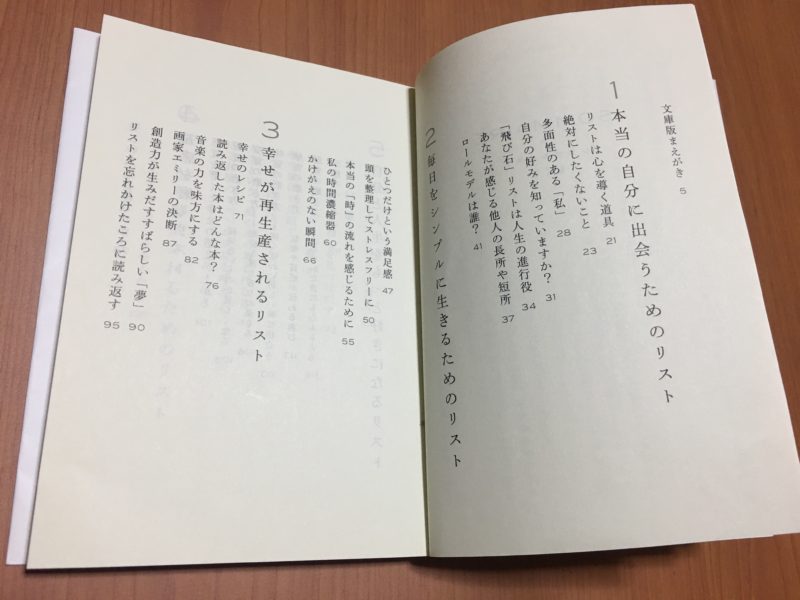 文庫版まえがき 5
1 本当の自分に出会うためのリスト
リストは心を導く道具 21
絶対にしたくないこと 23
多面性のある「私」 28
自分の好みを知っていますか? 31
「飛び石」リストは人生の進行役 34
あなたが感じる他人の長所や短所 37
ロールモデルは誰? 41
2 毎日をシンプルに生きるためのリスト
ひとつだけという満足感 47
頭を整理してストレスフリーに 50
本当の「時」の流れを感じるために 55
私の時間濃縮器 60
かけがえのない瞬間 66
3 幸せが再生産されるリスト
幸せのレシピ 71
読み返した本はどんな本? 76
音楽の力を味方にする 82
画家エミリーの決断 87
創造力が生みだすすばらしい「夢」 90
リストを忘れかけたころに読み返す 95